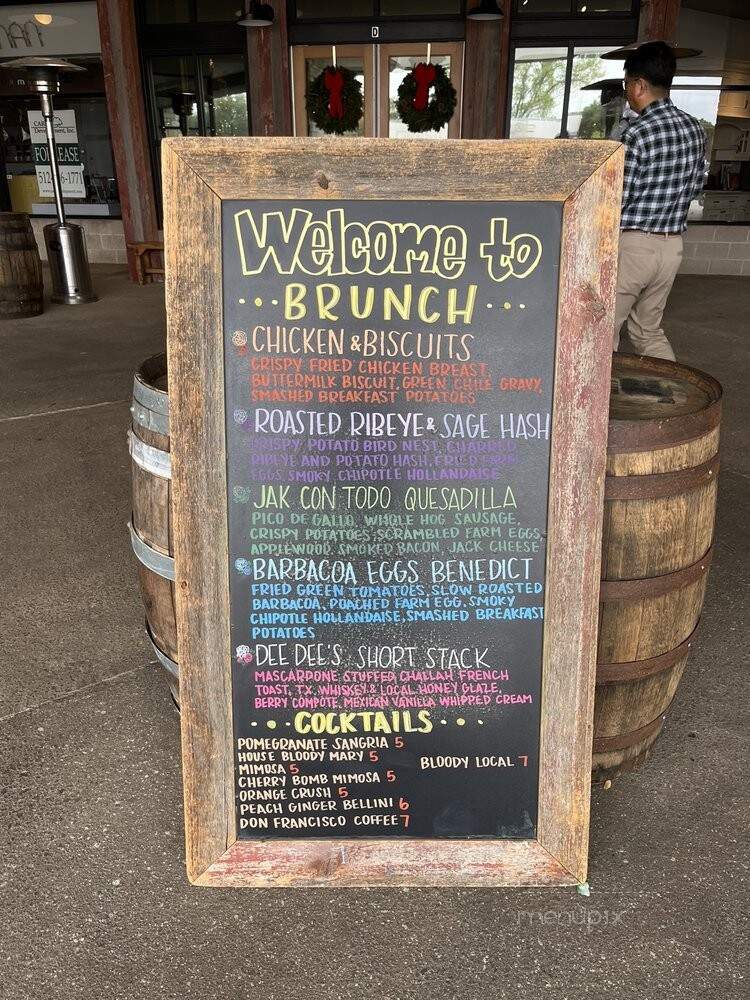 D
FOR LEASE
Welcome to
BRUNCH
CHICKEN & BISCUITS
CRISPY FRIED CHICKEN BREAST,
BUTTERMILK BISCUIT, GREEN CHILE GRAVY,
SMASHED BREAKFAST POTATOES
ROASTED RIBEYE & SAGE HASH
CRISPY POTATO BIRD NEST, CHARRED
RIBEYE AND POTATO HASH, FRIED FARM
EGGS, SMOKY CHIPOTLE HOLLANDAISE
JAK CON TODO QUESADILLA
PICO DE GALLO, WHOLE HOG SAUSAGE,
CRISPY POTATOES, SCRAMBLED FARM EGGS,
APPLEWOOD SMOKED BACON, JACK CHEESE
BARBACOA EGGS BENEDICT
FRIED GREEN TOMATOES, SLOW ROASTED
BARBACOA, POACHED FARM EGG, SMOKY
CHIPOTLE HOLLANDAISE, SMASHED BREAKFAST
POTATOES
DEE DEE'S SHORT STACK
MASCARPONE STUFFED CHALLAH FRENCH
TOAST, TX WHISKEY & LOCAL HONEY GLAZE,
BERRY COMPOTE, MEXICAN VANILLA WHIPPED CREAM
COCKTAILS
POMEGRANATE SANGRIA 5
HOUSE BLOODY MARY 5
MIMOSA 5
CHERRY BOMB MIMOSA 5
ORANGE CRUSH 5
PEACH GINGER BELLINI 6
DON FRANCISCO COFFEE 7
BLOODY LOCAL 7
menupix